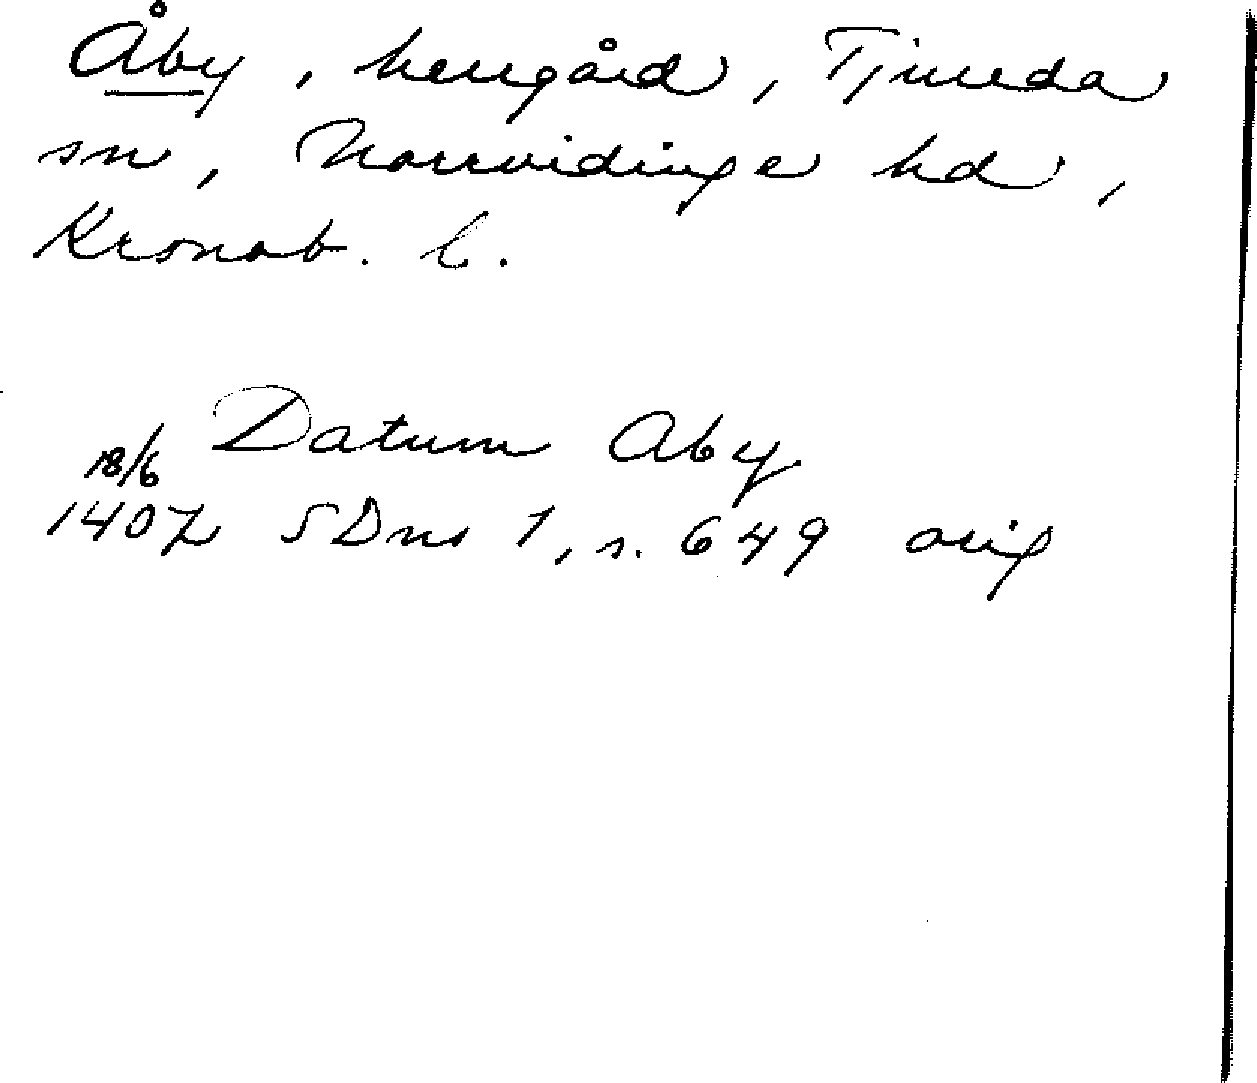 Åby, herrgård, Tjureda
sn, Norrvidinge hd,
Kronob. l.
Datum Aby
18/6
1407 SDns 1, s. 649 orig